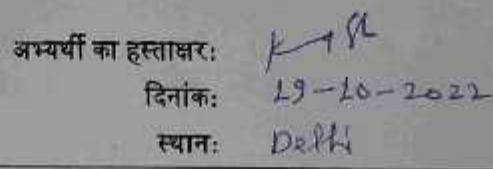 अभ्यर्थी का हस्ताक्षर:
दिनांक: 19-10-2022
स्थान: Delhi